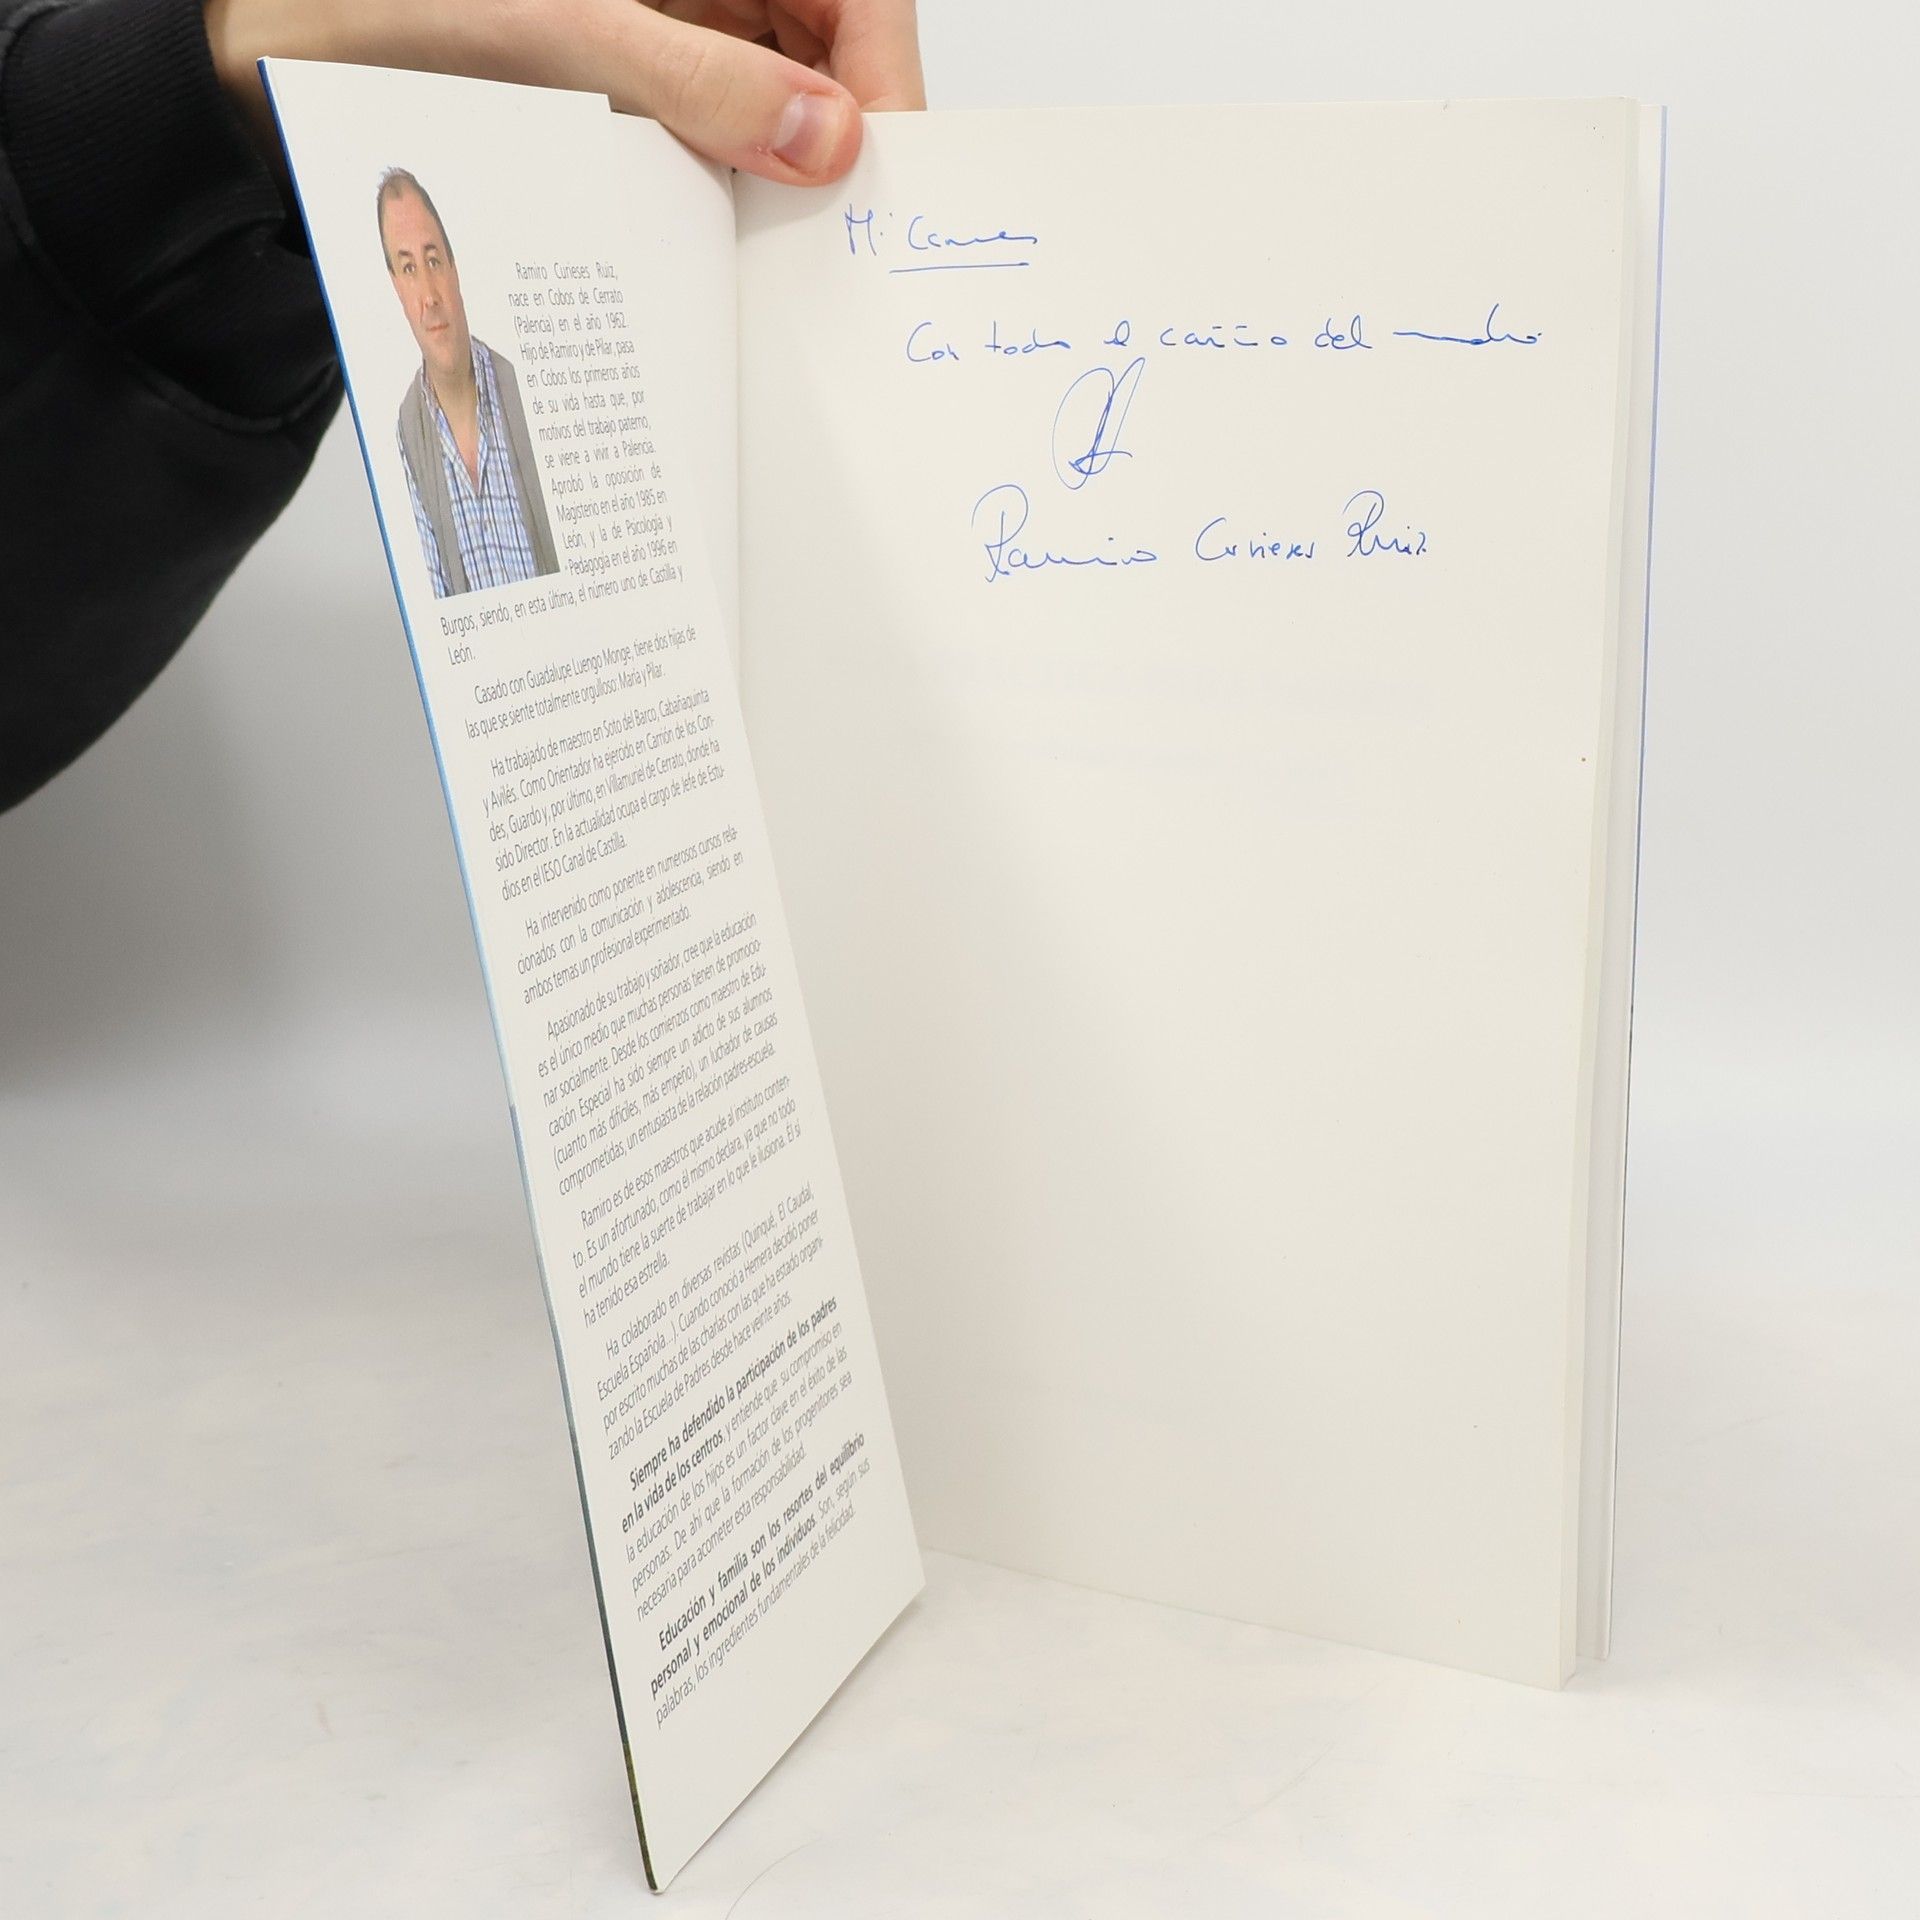 Ramiro Curieses Ruiz,
nace en Cobos de Cerrato
(Palencia) en el año 1962.
Hijo de Ramiro y de Pilar, pasa
en Cobos los primeros años
de su vida hasta que, por
motivos del trabajo paterno,
se viene a vivir a Palencia.
Aprobó la oposición de
Magisterio en el año 1985 en
León, y la de Psicología y
Pedagogía en el año 1996 en
Burgos, siendo, en esta última, el número uno de Castilla y
León.
Casado con Guadalupe Luengo Monge, tiene dos hijas de
las que se siente totalmente orgulloso: María y Pilar.
Ha trabajado de maestro en Soto del Barco, Cabañaquinta
y Avilés. Como Orientador ha ejercido en Carrión de los Con-
des, Guardo y, por último, en Villamuriel de Cerrato, donde ha
sido Director. En la actualidad ocupa el cargo de Jefe de Estu-
dios en el IESO Canal de Castilla.
Ha intervenido como ponente en numerosos cursos rela-
cionados con la comunicación y adolescencia, siendo en
ambos temas un profesional experimentado.
Apasionado de su trabajo y soñador, cree que la educación
es el único medio que muchas personas tienen de promocio-
nar socialmente. Desde los comienzos como maestro de Edu-
cación Especial ha sido siempre un adicto de sus alumnos
(cuanto más difíciles, más empeño), un luchador de causas
comprometidas, un entusiasta de la relación padres-escuela.
Ramiro es de esos maestros que acude al instituto conten-
to. Es un afortunado, como él mismo declara, ya que no todo
el mundo tiene la suerte de trabajar en lo que le ilusiona. Él sí
ha tenido esa estrella.
Ha colaborado en diversas revistas (Quinqué, El Caudal,
Escuela Española...). Cuando conoció a Hemera decidió poner
por escrito muchas de las charlas con las que ha estado organi-
zando la Escuela de Padres desde hace veinte años.
Siempre ha defendido la participación de los padres
en la vida de los centros, y entiende que su compromiso en
la educación de los hijos es un factor clave en el éxito de las
personas. De ahí que la formación de los progenitores sea
necesaria para acometer esta responsabilidad.
Educación y familia son los resortes del equilibrio
personal y emocional de los individuos. Son, según sus
palabras, los ingredientes fundamentales de la felicidad.
Mª Carmen
Con todo el cariño del mundo
Ramiro Curieses Ruiz